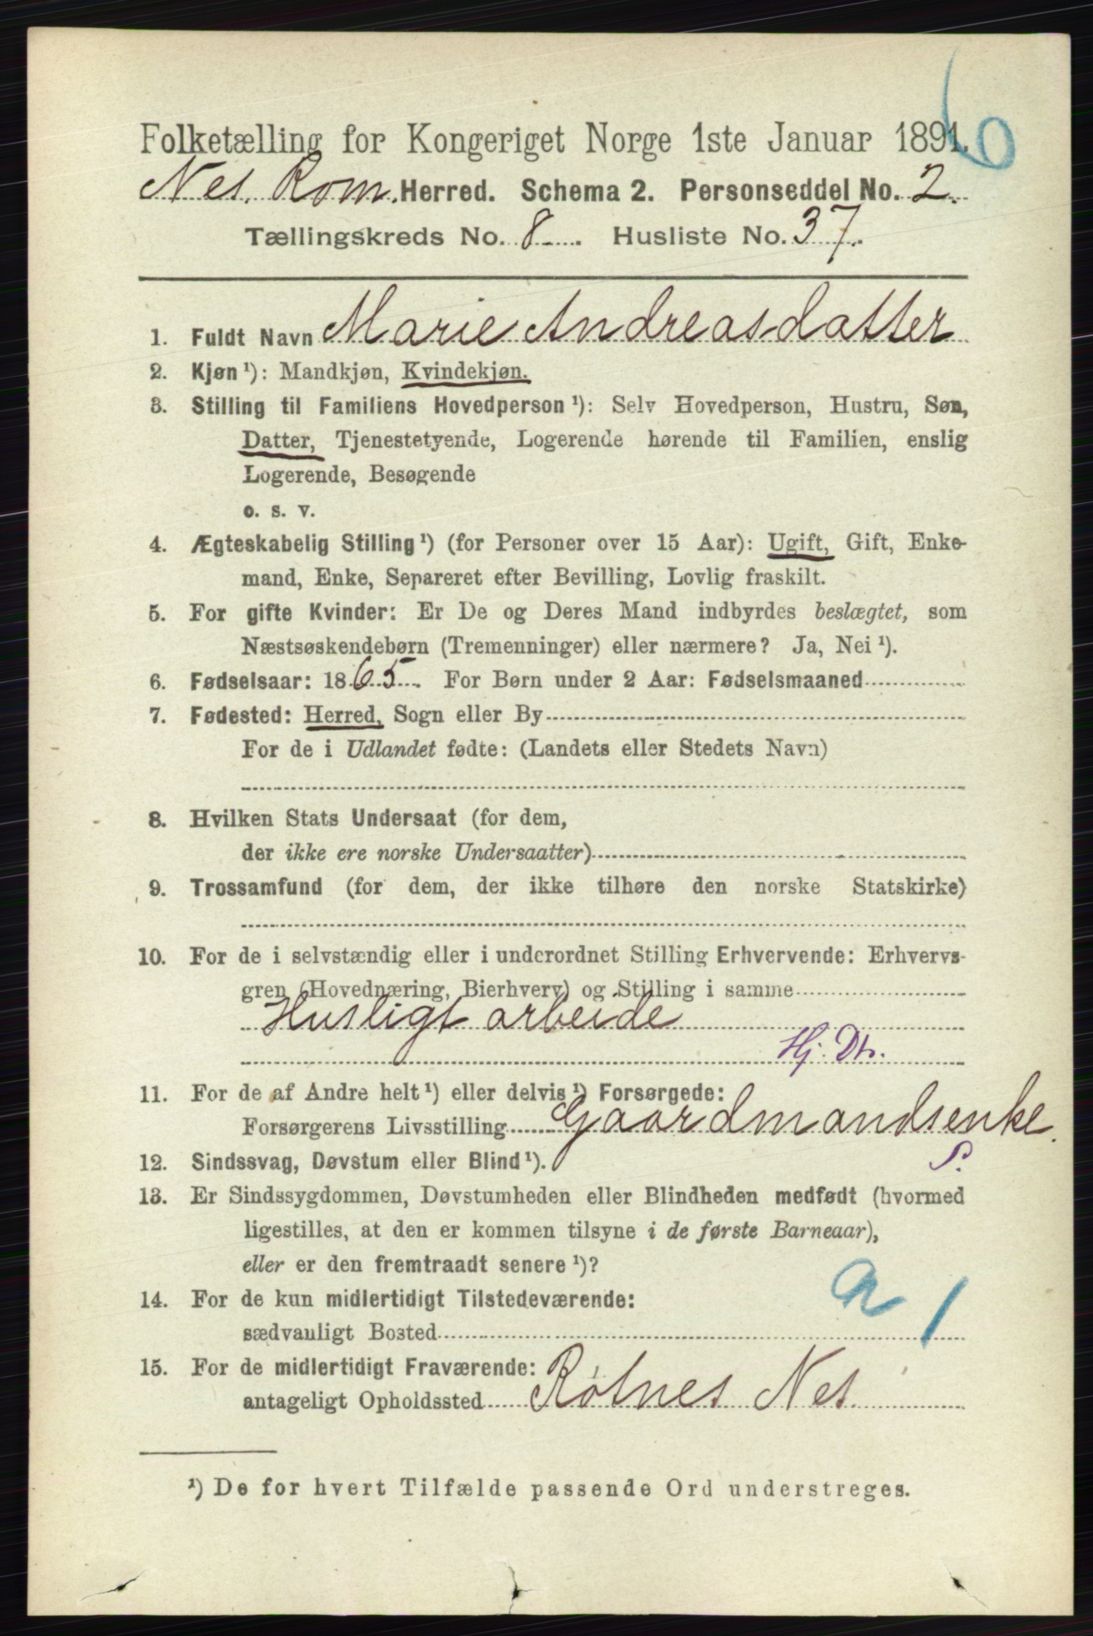 Folketælling for Kongeriget Norge 1ste Januar 1891.
6
Nes. Rom. Herred. Schema 2. Personseddel No. 2.
Tællingskreds No. 8. Husliste No. 37.
1. Fuldt Navn Marie Andreasdatter
2. Kjøn ¹): Mandkjøn, Kvindekjøn.
3. Stilling til Familiens Hovedperson ¹): Selv Hovedperson, Hustru, Søn,
Datter, Tjenestetyende, Logerende hørende til Familien, enslig
Logerende, Besøgende
o. s. v.
4. Ægteskabelig Stilling ¹) (for Personer over 15 Aar): Ugift, Gift, Enke-
mand, Enke, Separeret efter Bevilling, Lovlig fraskilt.
5. For gifte Kvinder: Er De og Deres Mand indbyrdes beslægtet, som
Næstsøskendebørn (Tremenninger) eller nærmere? Ja, Nei ¹).
6. Fødselsaar: 1865. For Børn under 2 Aar: Fødselsmaaned
7. Fødested: Herred, Sogn eller By
For de i Udlandet fødte: (Landets eller Stedets Navn)
8. Hvilken Stats Undersaat (for dem,
der ikke ere norske Undersaatter)
9. Trossamfund (for dem, der ikke tilhøre den norske Statskirke)
10. For de i selvstændig eller i underordnet Stilling Erhvervende: Erhvervs-
gren (Hovednæring, Bierhverv) og Stilling i samme
Husligt arbeide
Hj. Dtr.
11. For de af Andre helt ¹) eller delvis ¹) Forsørgede:
Forsørgerens Livsstilling Gaardmandsenke.
12. Sindssvag, Døvstum eller Blind ¹). S.
13. Er Sindssygdommen, Døvstumheden eller Blindheden medfødt (hvormed
ligestilles, at den er kommen tilsyne i de første Barneaar),
eller er den fremtraadt senere ¹)?
14. For de kun midlertidigt Tilstedeværende:
sædvanligt Bosted
a 1
15. For de midlertidigt Fraværende:
antageligt Opholdssted Rølnes Nes.
¹) De for hvert Tilfælde passende Ord understreges.